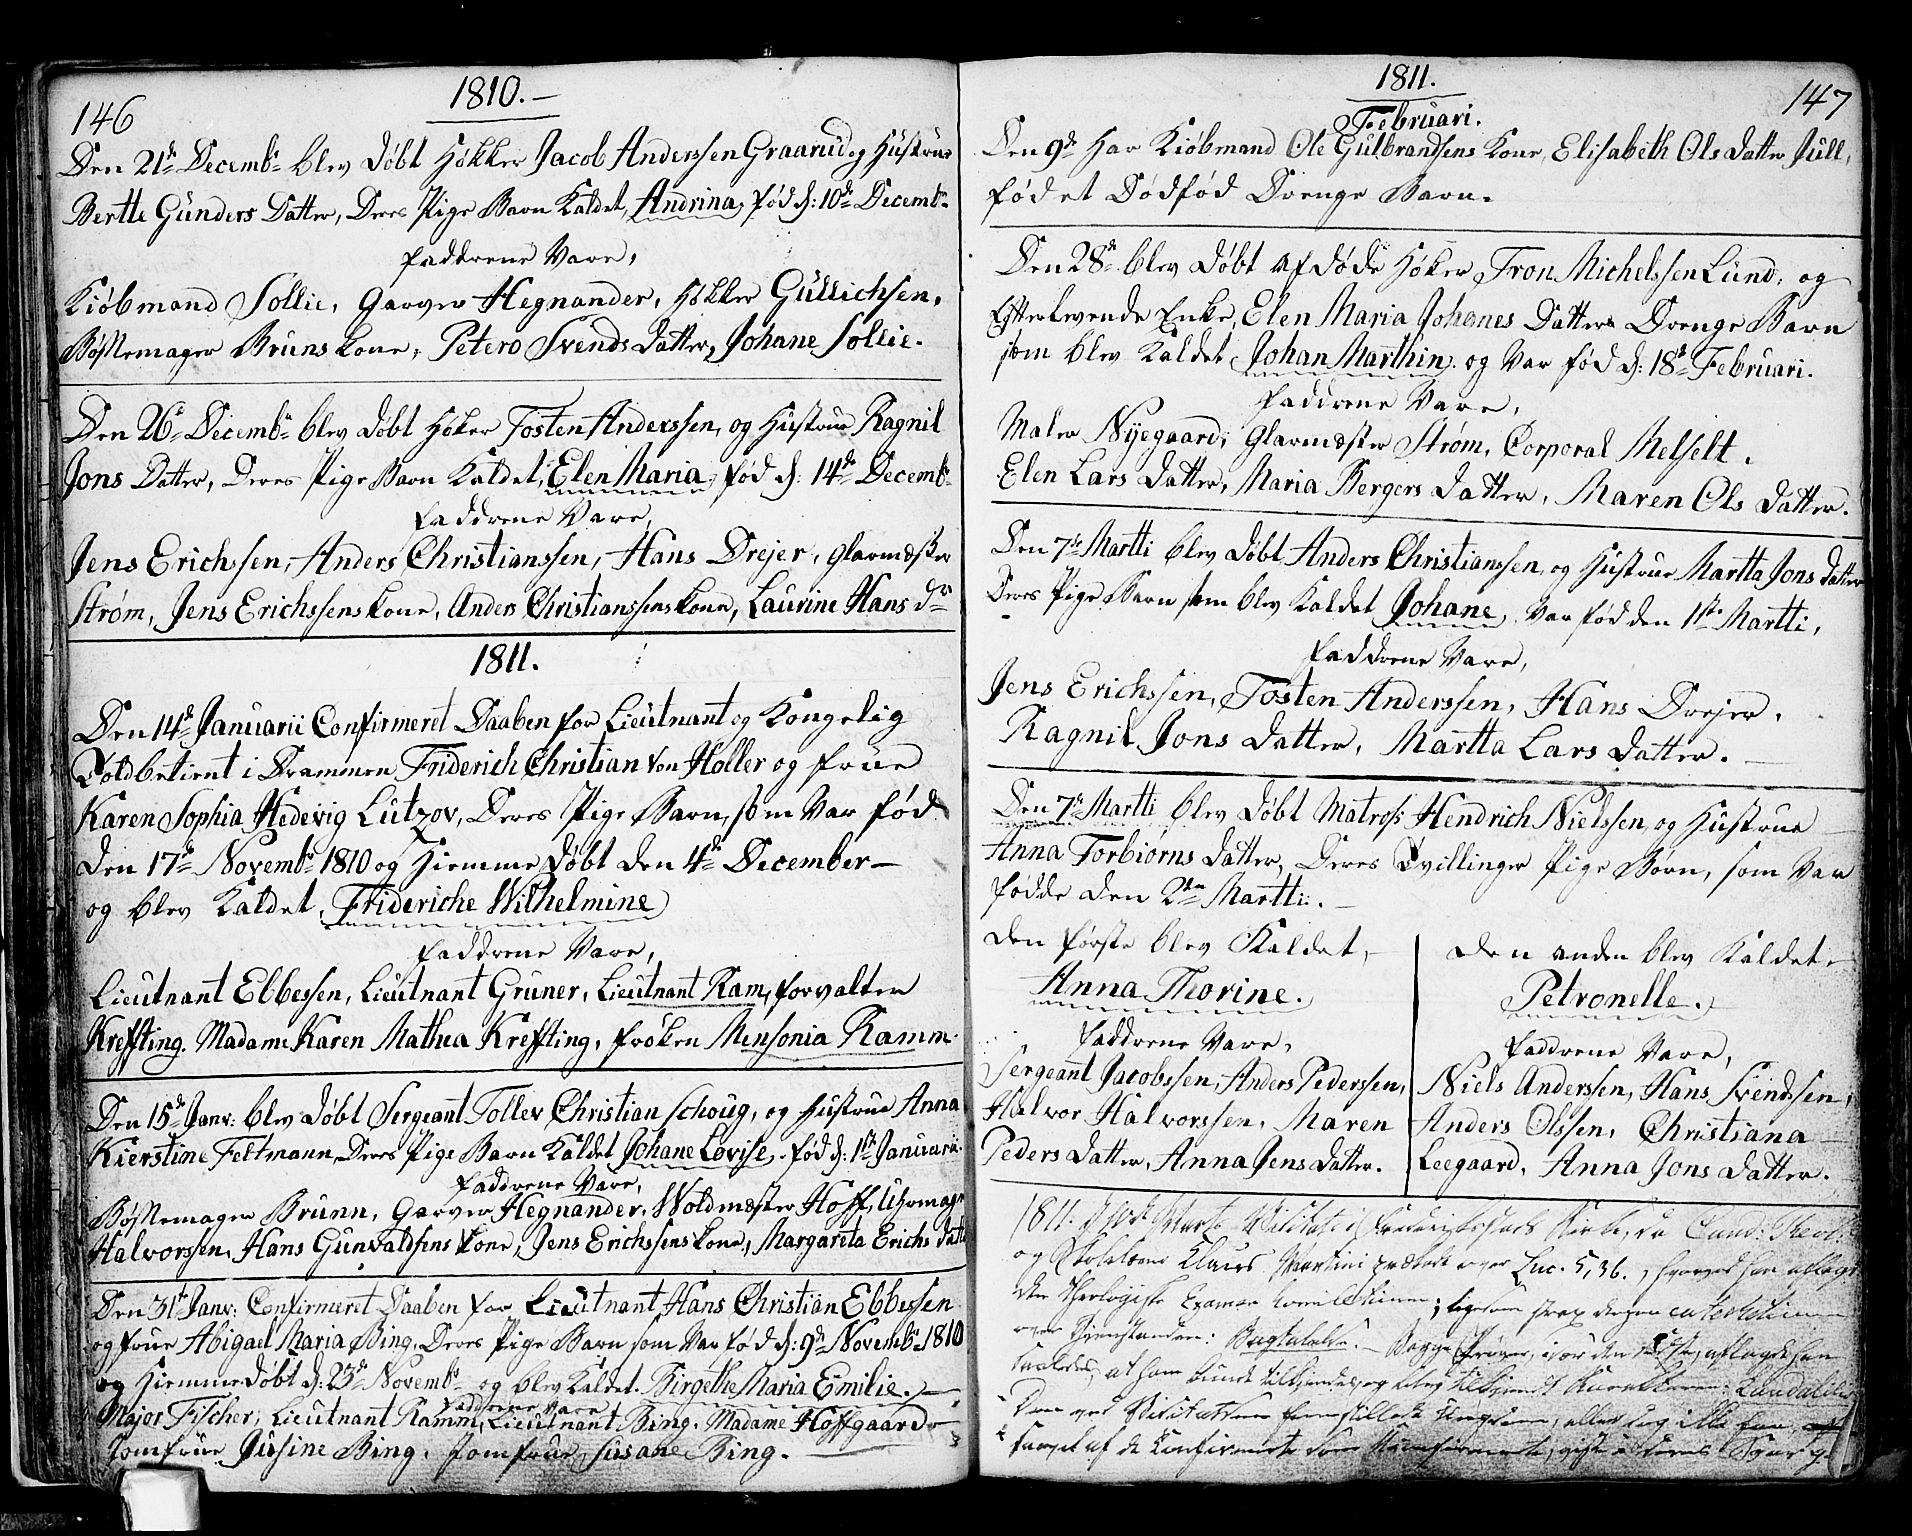 146
1810.
Den 21de Decembr blev døbt Høkker Jacob Anderssen Graarud og Hustrue
Bertte Gunders Datter, Deres Pige Barn Kaldet, Andrina, fød d: 10de Decembr
Faddrene Vare,
Kiøbmand Sollie, Garver Hegnander, Høkker Gullichsen,
Bøssemager Bruns Kone, Petero Svends Datter, Johane Sollie.
Den 26de Decembr blev døbt Høker Tosten Anderssen, og Hustrue Ragnil
Jons Datter, Deres Pige Barn Kaldet, Elen Maria, fød d: 14de Decembr
Faddrene Vare,
Jens Erichssen, Anders Christianssen, Hans Drejer, Glarmæster
Strøm, Jens Erichssens Kone, Anders Christianssens Kone, Laurine Hans dr
1811.
Den 14de Januarii Confirmeret Daaben for Lieutnant og Kongelig
Toldbetient i Drammen Friderich Christian von Holler og Frue
Karen Sophia Hedevig Lützov, Deres Pige Barn, som Var fød
den 17de Novembr 1810 og Hiemme døbt den 4de December
og blev Kaldet, Friderriche Wilhelmine
Faddrene Vare,
Lieutnant Ebbessen, Lieutnant Gruner, Lieutnant Ram, Forvalter
Kreffting, Madame Karen Mathea Kreffting, Frøken Mensonia Ramm.
Den 15de Janv: blev døbt Sergeant Tollev Christian Schoug, og Hustrue Anna
Kierstine Feltmann, Deres Pige Barn Kaldet Johane Lovise, fød d: 1ste Januarii.
Faddrene Vare,
Bøssemager Brunn, Garver Hegnander, Woldmæster Hoff, Uhrmager
Halvorssen, Hans Gunvaldsens Kone, Jens Erichssens Kone, Margareta Erichs datter
Den 31te Janv: Confirmeret Daaben for Lieutnant Hans Christian Ebbessen
og Frue Abigael Maria Bing, Deres Pige Barn som Var fød d: 9de Novembr 1810
og Hiemme døbt d: 23de Novembr og blev Kaldet. Birgethe Maria Emilie.
Faddrene Vare
Major Fischer, Lieutnant Ramm, Lieutnant Bing. Madame Hoffgaard
Jomfrue Jusine Bing, Jomfrue Susane Bing.
1811.
147
Februari.
Den 9de Har Kiøbmand Ole Gulbrandsens Kone, Elisabeth Ols Datter Jull,
fød et Dødfød Drenge Barn.
Den 28de blev døbt afdøde Høker Tron Michelssen Lund, og
Efterlevende Enke, Elen Maria Johanes Datters Drenge Barn
som blev Kaldet, Johan Marthin, og Var fød d: 18de Februari.
Faddrene Vare,
Maler Nyegaard, Glarmæster Strøm, Corporal Melselt.
Elen Lars Datter, Maria Bergers Datter, Maren Ols Datter.
Den 7de Martti blev døbt Anders Christianssen, og Hustrue Martta Jons Datter
Deres Pige Barn som blev Kaldet Johane, Var fød den 1ste Martti,
Faddrene Vare,
Jens Erichssen, Tosten Anderssen, Hans Drejer,
Ragnil Jons Datter, Martta Lars Datter.
Den 7de Martti blev døbt Matros Hendrich Nielssen, og Hustrue
Anna Torbiorns Datter, Deres Tvillinger Pige Børn, som Var
fødde den 2den Martti.
Den første blev Kaldet,
Anna Thorine.
Faddrene Vare,
Sergeant Jacobssen, Anders Pederssen,
Halvor Halvorssen, Maren
Peders Datter, Anna Jens Datter.
Den anden blev Kaldet
Petronelle.
Faddrene Vare,
Niels Anderssen, Hans Svendsen,
Anders Olssen, Christiana
Leegaard, Anna Jons Datter.
1811. Marts Visitats i Kirke, da Cand:
og Claus Martini over Luc. 5, 36.,
Theologiske Examen
over
at han
Den ved Visitatsen
af de